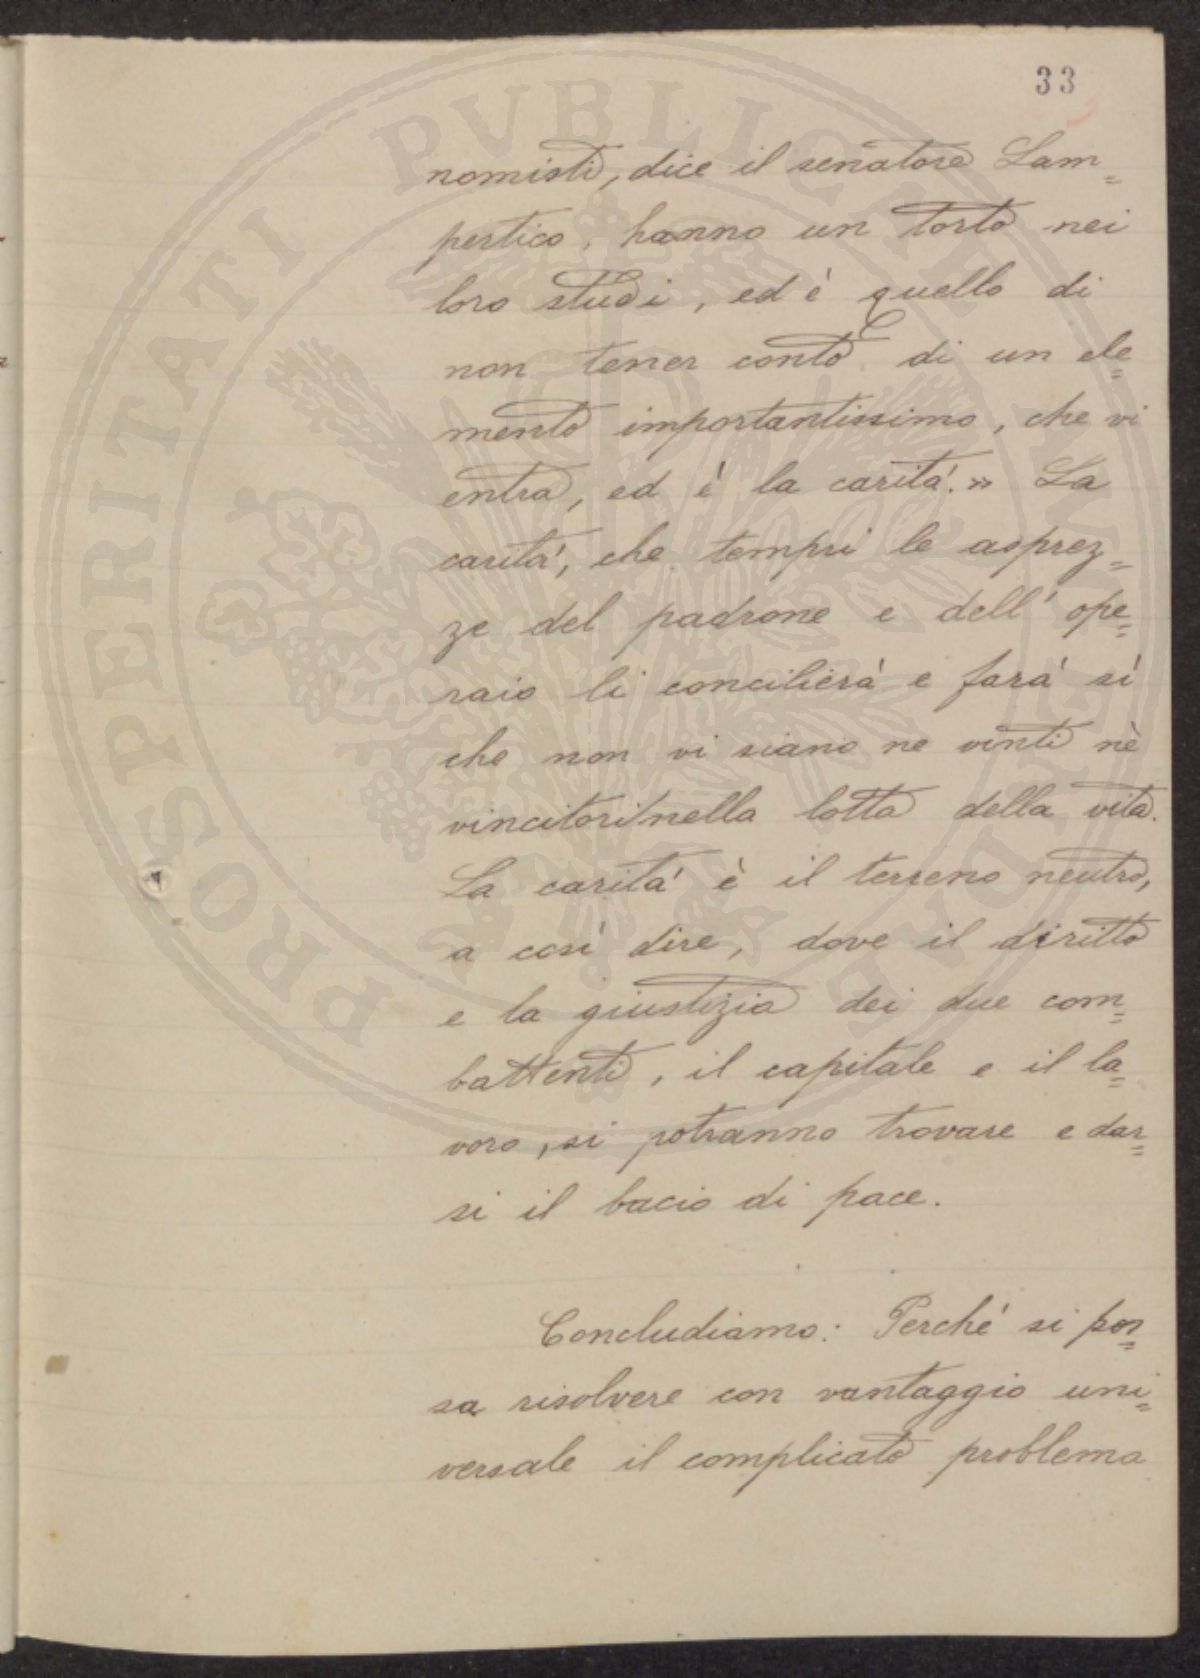 33
nomisti, dice il senatore Lam=
pertico, hanno un torto nei
loro studi, ed è quello di
non tener conto di un ele=
mento importantissimo, che vi
entra, ed è la carità.» La
carità, che tempri le asprez=
ze del padrone e dell' ope=
raio li concilierà e farà sì
che non vi siano ne vinti nè
vincitori nella lotta della vita.
La carità è il terreno neutro,
a così dire, dove il diritto
e la giustizia dei due com=
battenti, il capitale e il la=
voro, si potranno trovare e dar=
si il bacio di pace.
Concludiamo: Perché si pos=
sa risolvere con vantaggio uni=
versale il complicato problema